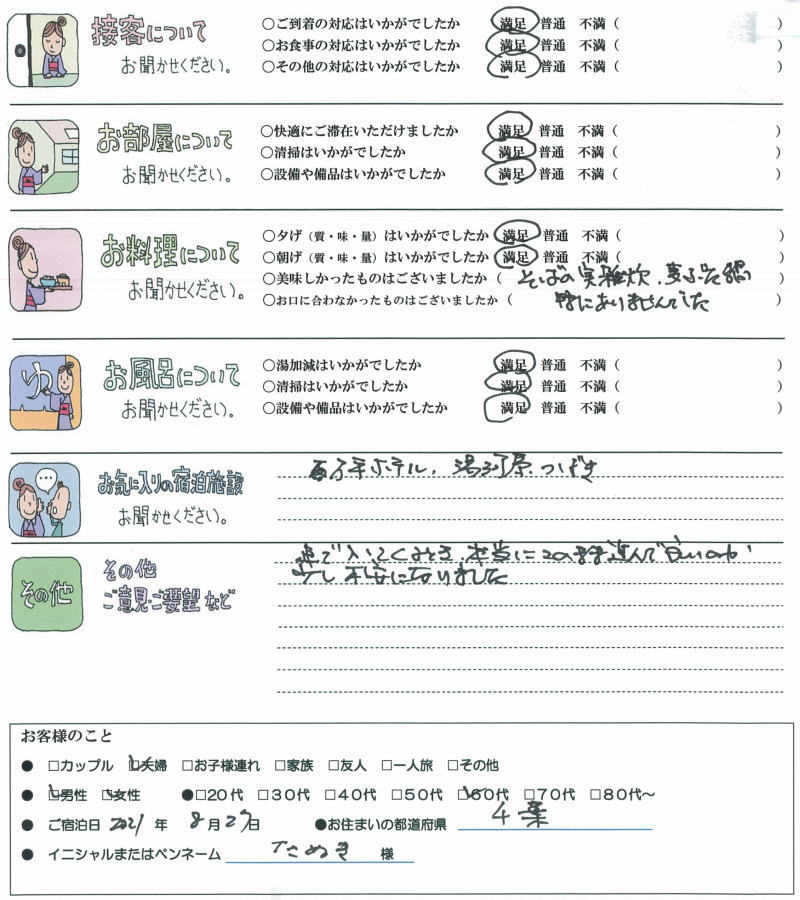 接客について
お聞かせください。
○ご到着の対応はいかがでしたか 満足 普通 不満（ ）
○お食事の対応はいかがでしたか 満足 普通 不満（ ）
○その他の対応はいかがでしたか 満足 普通 不満（ ）
お部屋について
お聞かせください。
○快適にご滞在いただけましたか 満足 普通 不満（ ）
○清掃はいかがでしたか 満足 普通 不満（ ）
○設備や備品はいかがでしたか 満足 普通 不満（ ）
お料理について
お聞かせください。
○夕げ（質・味・量）はいかがでしたか 満足 普通 不満（ ）
○朝げ（質・味・量）はいかがでしたか 満足 普通 不満（ ）
○美味しかったものはございましたか（ そばの実雑炊、 ）
○お口に合わなかったものはございましたか（ 特にありませんでした ）
ゆ
お風呂について
お聞かせください。
○湯加減はいかがでしたか 満足 普通 不満（ ）
○清掃はいかがでしたか 満足 普通 不満（ ）
○設備や備品はいかがでしたか 満足 普通 不満（ ）
お気に入りの宿泊施設
お聞かせください。
ホテル、湯河原つばき
その他
その他
ご意見・ご要望など
車で入いてくるとき、本当にこのまま進んで良いのか
少し不安になりました
お客様のこと
● □カップル □夫婦 □お子様連れ □家族 □友人 □一人旅 □その他
● □男性 □女性 ●□20代 □30代 □40代 □50代 □60代 □70代 □80代～
● ご宿泊日 2021 年 8月27日 ●お住まいの都道府県 千葉
● イニシャルまたはペンネーム たぬき 様